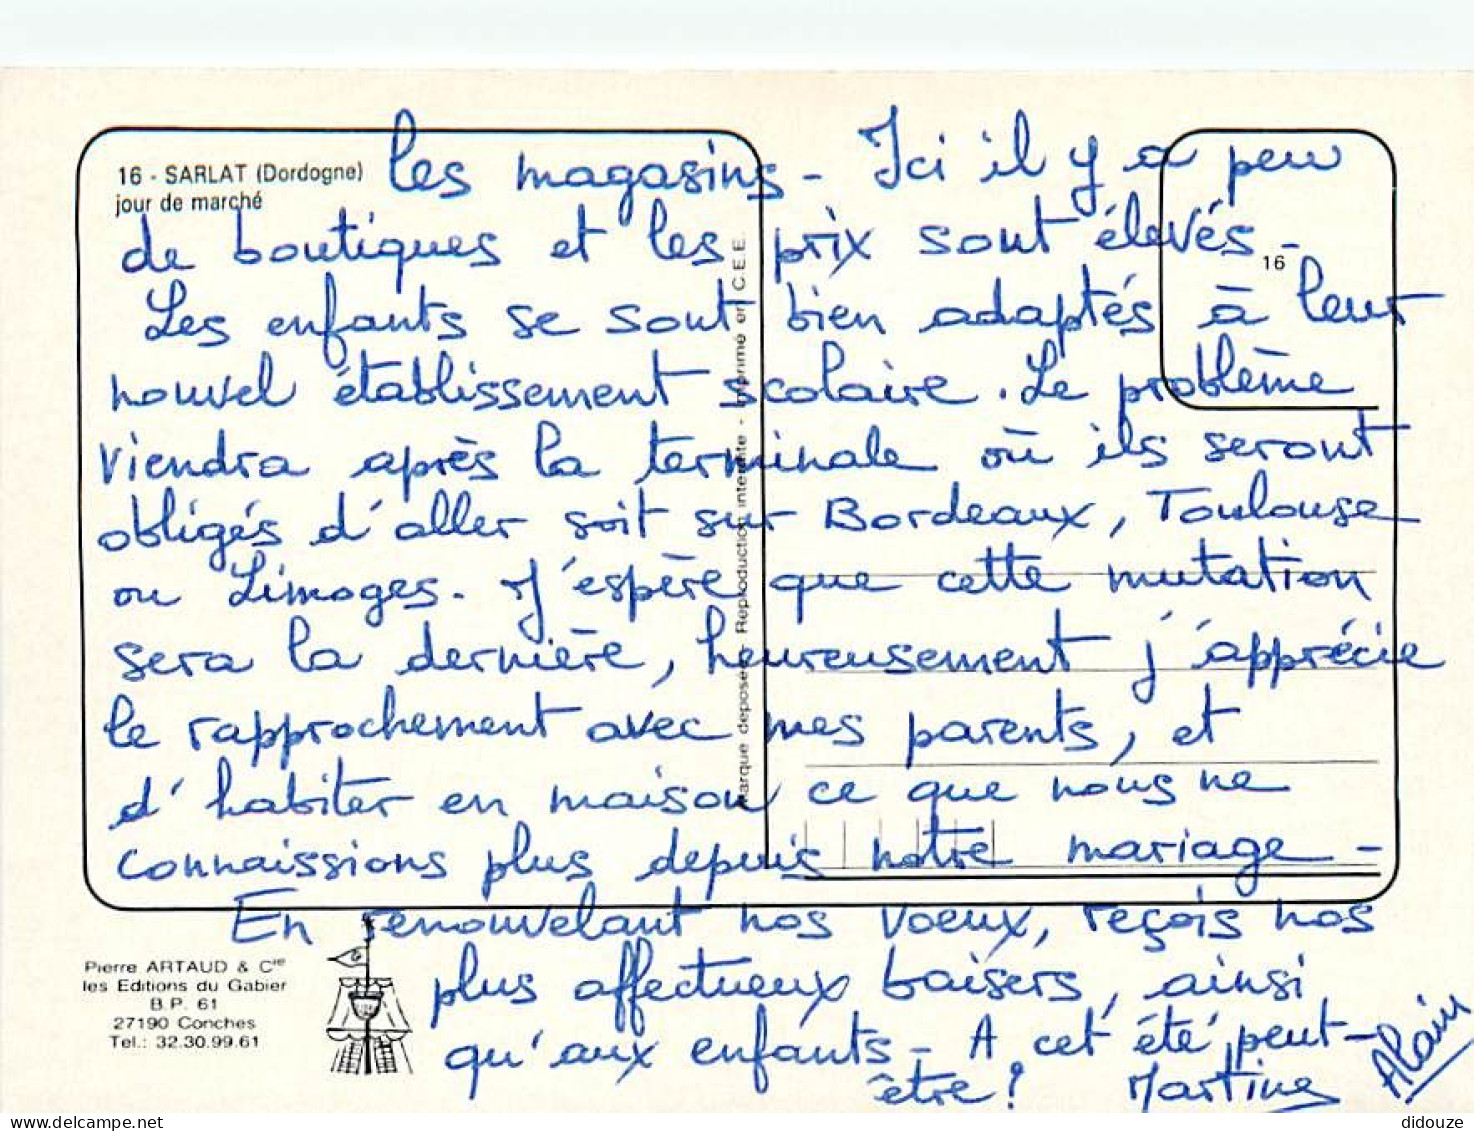 16 - SARLAT (Dordogne)
jour de marché
les magasins - Ici il y a peu
de boutiques et les prix sont élevés -
16
Les enfants se sont bien adaptés à leur
nouvel établissement scolaire. Le problème
viendra après la terminale où ils seront
obligés d'aller soit sur Bordeaux, Toulouse
ou Limoges. J'espère que cette mutation
sera la dernière, heureusement j'apprécie
le rapprochement avec mes parents, et
d'habiter en maison ce que nous ne
connaissions plus depuis notre mariage -
En renouvelant nos voeux, reçois nos
plus affectueux baisers, ainsi
qu'aux enfants - A cet été peut-
être ? Martine Alain
Marque déposée - Reproduction interdite - Imprimé en C.E.E.
Pierre ARTAUD & Cie
les Editions du Gabier
B.P. 61
27190 Conches
Tel.: 32.30.99.61
delcampe.net
didouze